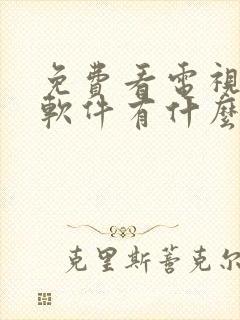 免費看電視
軟件有什麼
克里斯蒂克尔